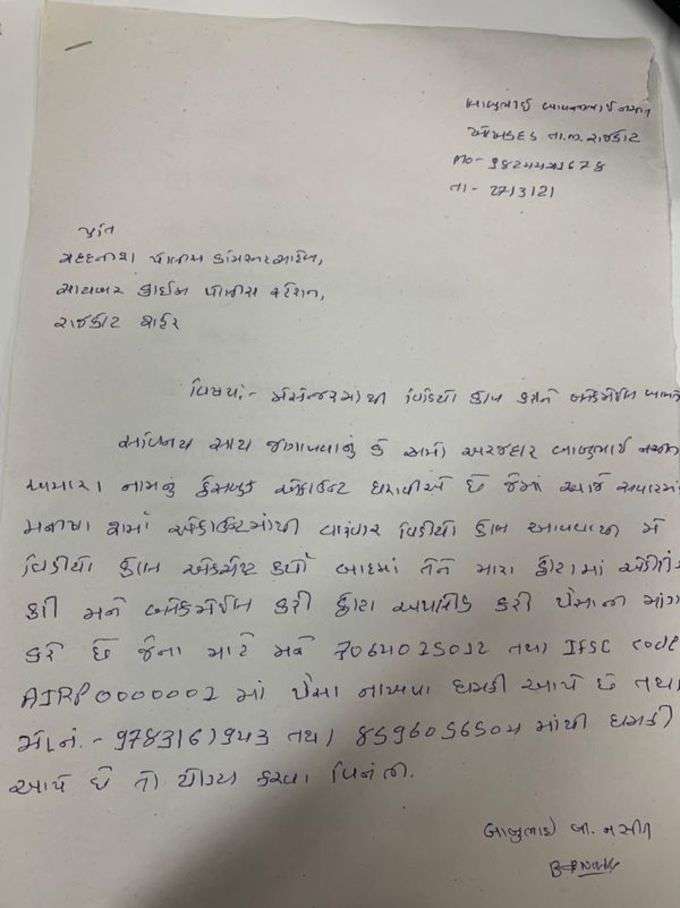 બાબુભાઈ બાવનજીભાઈ નસીત
ખોખડદડ તા.જી. રાજકોટ
તા - 27/3/21
પ્રતિ
મહેરબાન પોલીસ કમિશ્નર સાહેબ,
સાયબર ક્રાઈમ પોલીસ સ્ટેશન,
રાજકોટ શહેર
વિષય:- મેસેન્જરમાંથી વિડિયો કોલ કરીને બ્લેકમેઈલ બાબતે
સવિનય સાથ જણાવવાનું કે અમો અરજદાર બાબુભાઈ નસીત
અમારા નામનું ફેસબુક એકાઉન્ટ ધરાવીએ છે જેમાં આજે સવારમાં
મનીષા શર્મા એકાઉન્ટમાંથી વારંવાર વિડીયો કોલ આવવાથી મેં
વિડીયો કોલ એક્સેપ્ટ કર્યો બાદમાં તેને મારા ફોટામાં એડીટીંગ
કરી મને બ્લેકમેઈલ કરી ફોટા અપલોડ કરી પૈસાની માંગ
કરે છે જેના માટે મને 7064025012 તથા IFSC code
AIRP0000001 માં પૈસા નાખવા ધમકી આપે છે તથા
મો.નં. - 9783161943 તથા 8596056504 માંથી ધમકી
આપે છે તો યોગ્ય કરવા વિનંતી.
બાબુભાઈ બા. નસીત